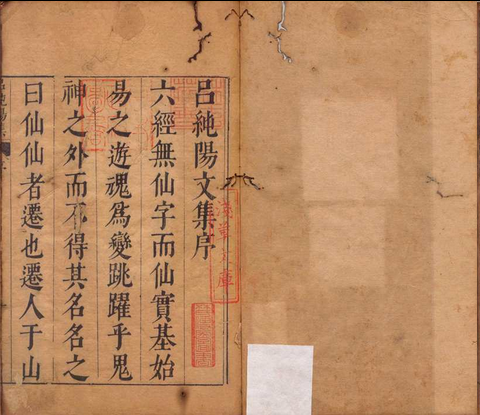 呂純陽文集序
六經無仙字而仙實基始
易之遊魂爲變跳躍乎鬼
神之外而不得其名名之
曰仙仙者遷也遷人于山
淺草文庫